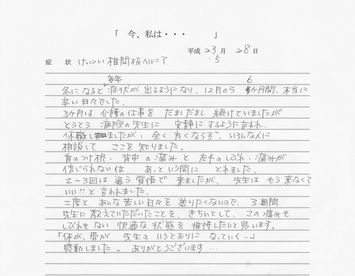 「 今、私は・・・ 」
平成 23 月 28 日
5
症 状 けいつい椎間板ヘルニア
毎年 6
冬になると症状が出るようになり、12月から ヶ月間、本当に
辛い日々でした。
3ヶ月は 介護の仕事を だましだまし 続けていましたが
とうとう 病院の先生に 安静にするように言われ
休職しましたが、全く良くならず、いろんな人に
相談して ここを知りました。
首のつけ根・背中の痛みと 左手のしびれ・痛みが
信じられない位、あっという間に とれました。
2〜3回は 違う質問で 来ましたが、先生は もう来なくて
いい!! と言われました。
二度と あんな苦しい日々を送りたくないので、3週間
先生に教えていただいたことを、きちんとして、この痛みも
しびれもない 快適な状態を 維持したいと思います。
「体が、骨が 先生の いうとおりに なっていく…」
感動しました。 ありがとうございます…